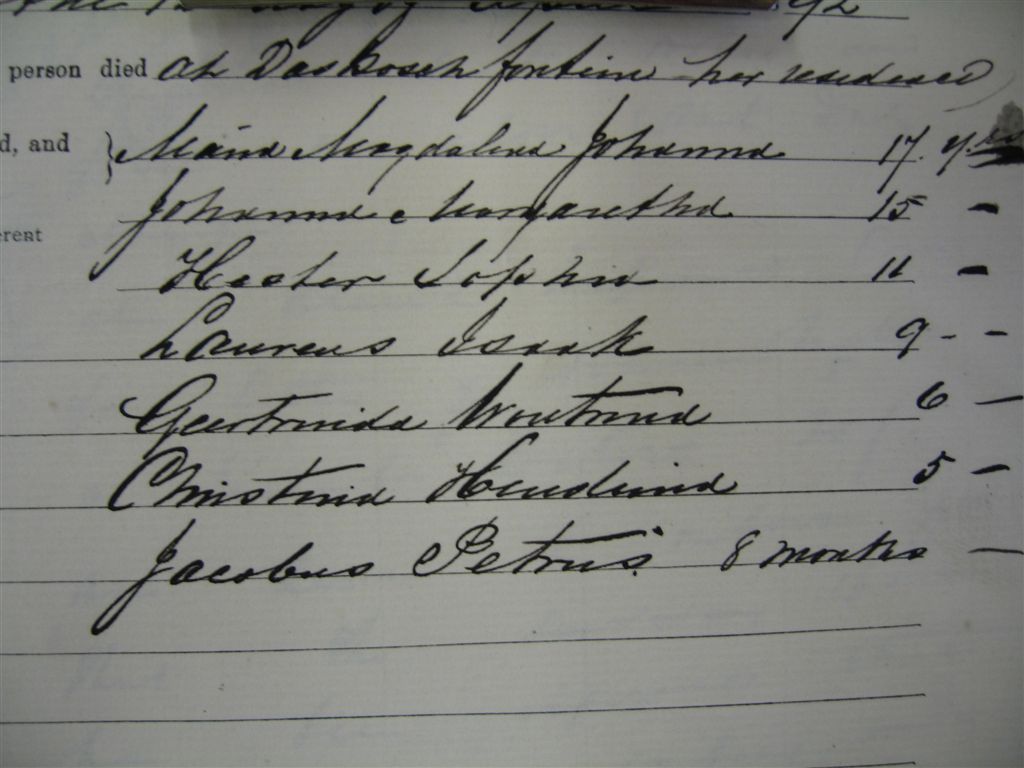 the day of 92
person died at Dasboschfontein her residence
d, and } Maria Magdalena Johanna 17. yrs
Johanna Margaretha 15 -
erent
Hester Sophia 11 -
Laurens Isaak 9 - -
Geertruida Woutrina 6 -
Christina Hendrina 5 -
Jacobus Petrus 8 months -